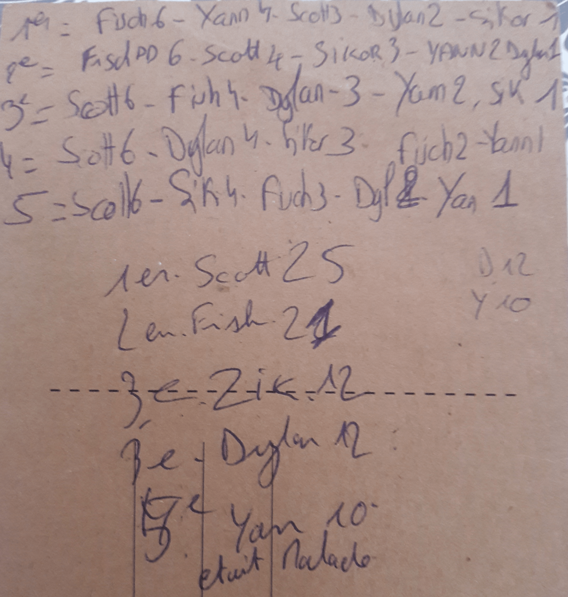 1er = Fisch 6 - Yann 4. Scott 3 - Dylan 2 - Sikor 1
2e = Fisch 6 - Scott 4 - SIKOR 3 - YANN 2 Dylan 1
3e = Scott 6 - Fish 4. Dylan - 3 - Yann 2, SiK 1
4 = Scott 6 - Dylan 4. Sikor 3. Fisch 2 - Yann 1
5 = Scott 6 - Sik 4. Fisch 3 - Dyl 2 Yan 1
1er. Scott 25
D 12
2en. Fish 21
Y 10
3e Zik. 12
3e - Dylan 12
5e Yan 10
etait Malade